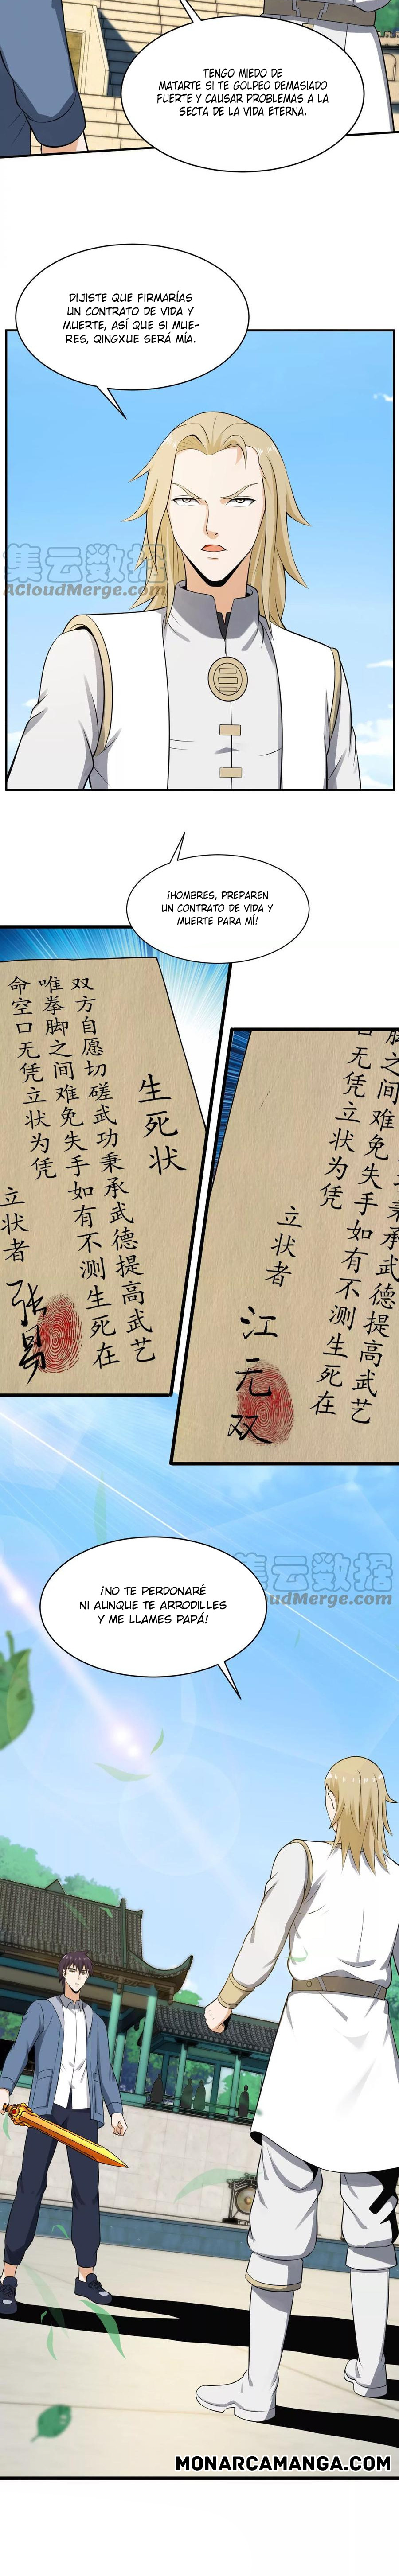 TENGO MIEDO DE
MATARTE SI TE GOLPEO DEMASIADO
FUERTE Y CAUSAR PROBLEMAS A LA
SECTA DE LA VIDA ETERNA.
DIJISTE QUE FIRMARÍAS
UN CONTRATO DE VIDA Y
MUERTE, ASÍ QUE SI MUE-
RES, QINGXUE SERÁ MÍA.
集云数据
ACloudMerge.com
¡HOMBRES, PREPAREN
UN CONTRATO DE VIDA Y
MUERTE PARA MÍ!
生死状
双方自愿切磋武功秉承武德提高武艺
唯拳脚之间难免失手如有不测生死在
命空口无凭立状为凭
立状者
张易
秉承武德提高武艺
脚之间难免失手如有不测生死在
口无凭立状为凭
立状者
江元双
集云数据
ACloudMerge.com
¡NO TE PERDONARÉ
NI AUNQUE TE ARRODILLES
Y ME LLAMES PAPÁ!
MONARCAMANGA.COM